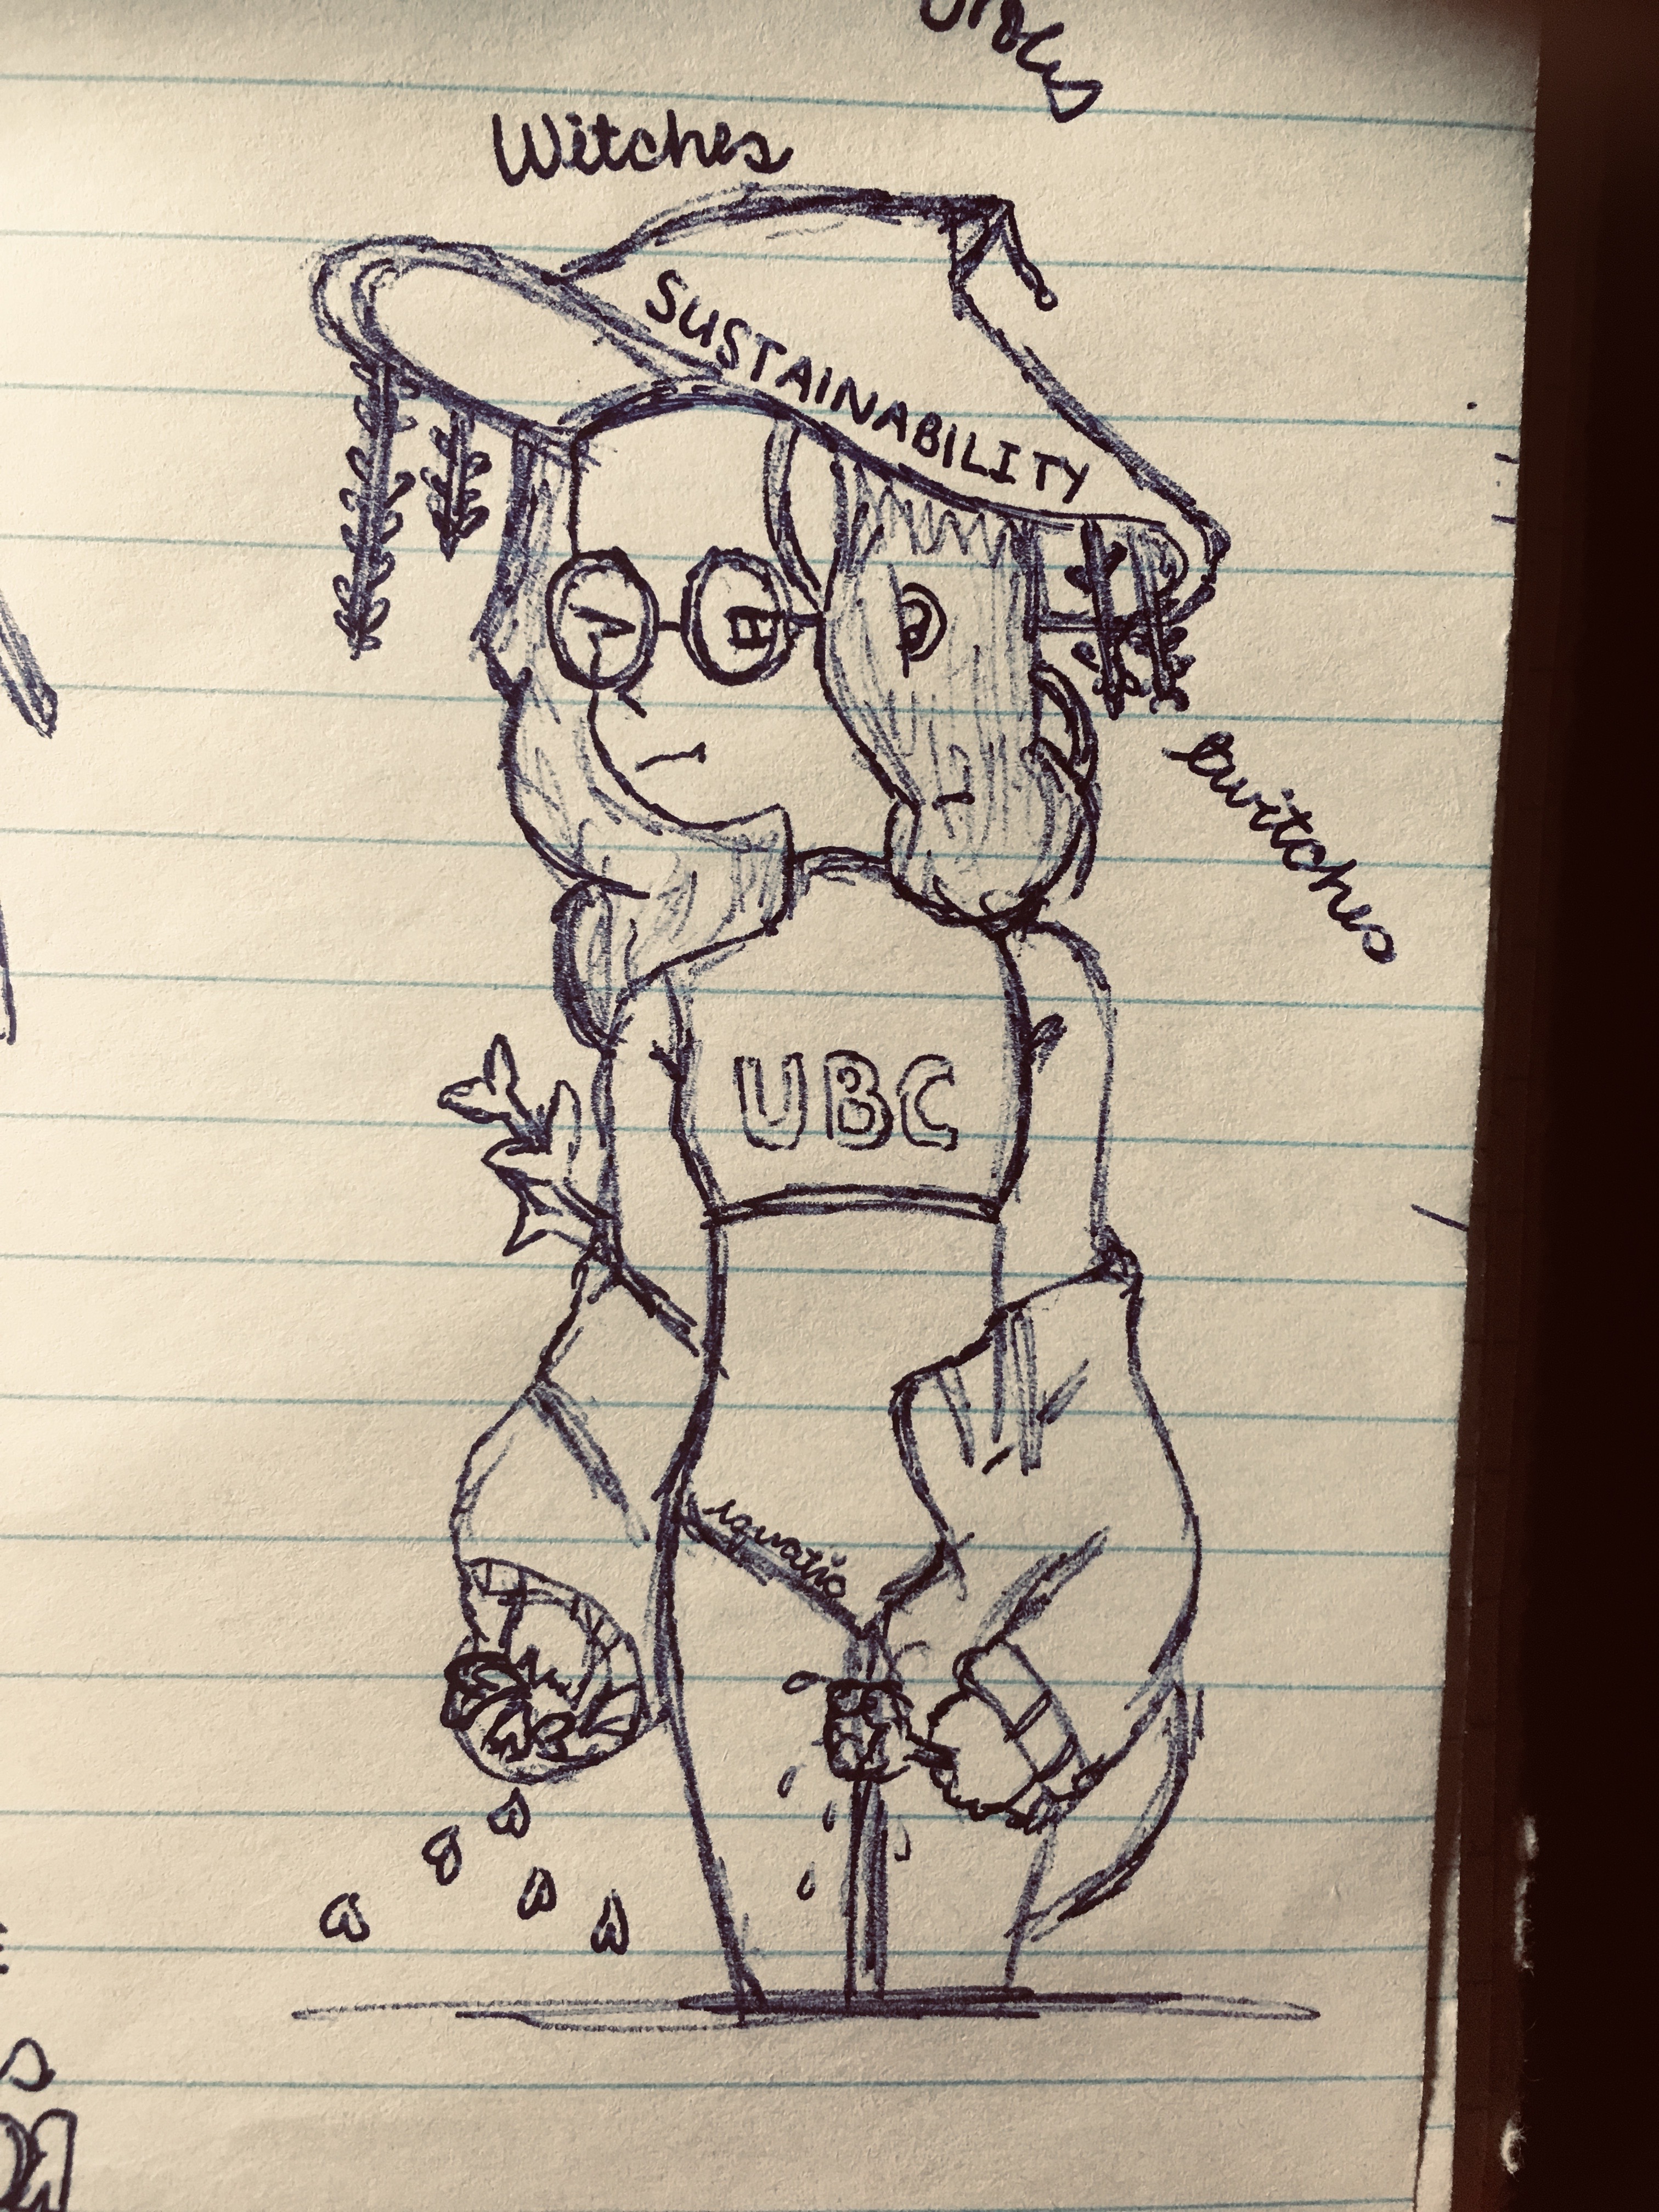 Witches
SUSTAINABILITY
twitches
UBC